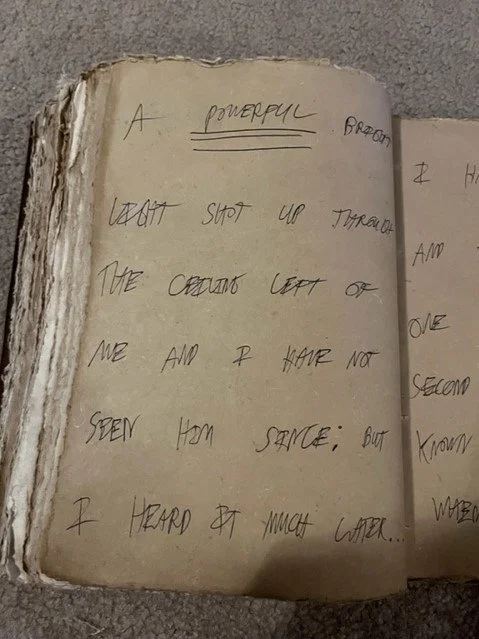 A POWERFUL BRIGHT
LIGHT SHOT UP THROUGH
THE CEILING LEFT OF
ME AND I HAVE NOT
SEEN HIM SINCE; BUT
I HEARD IT MUCH LATER...
I
AND
ONE
SECOND
KNOWN